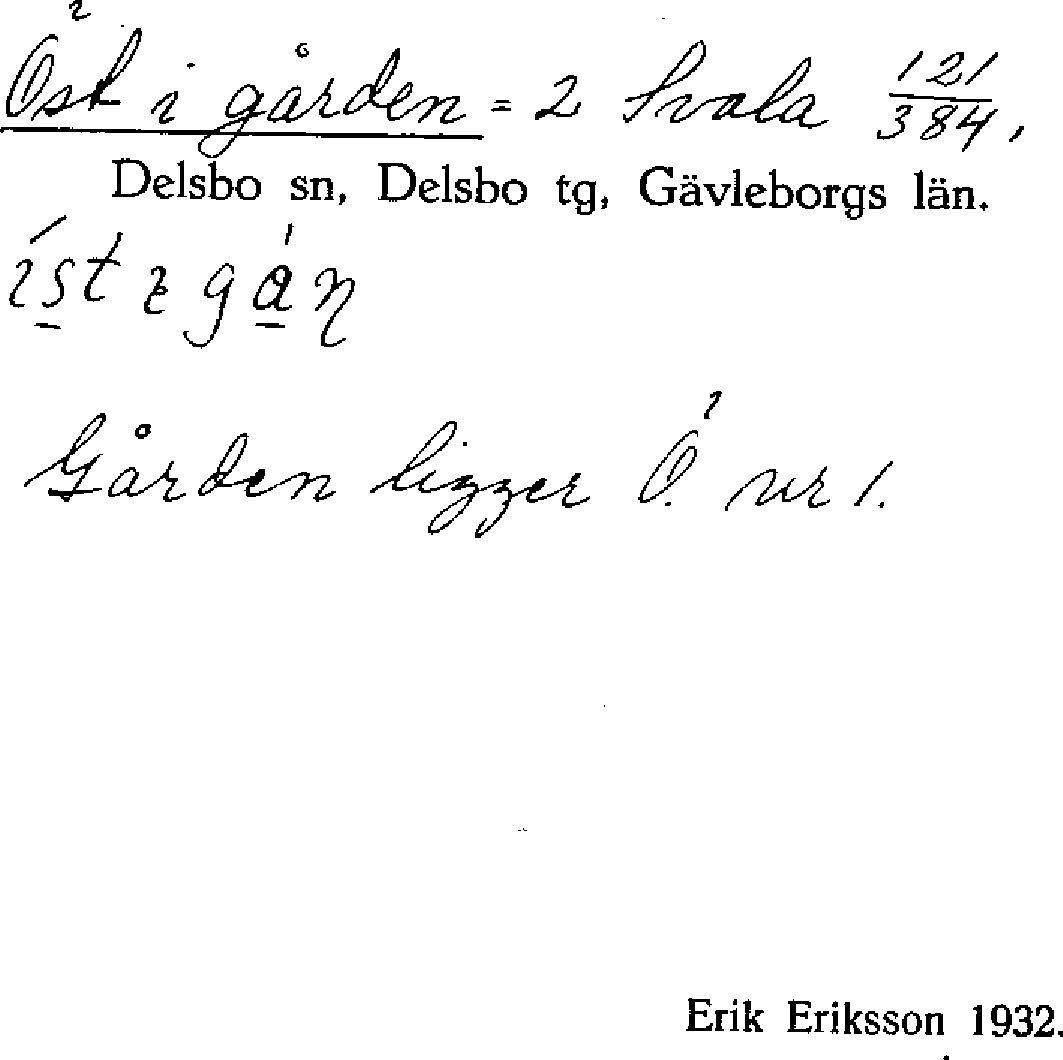 Öst i gården = 2 Svala 121/384,
Delsbo sn, Delsbo tg, Gävleborgs län.
Gården ligger Ö. nr 1.
Erik Eriksson 1932.